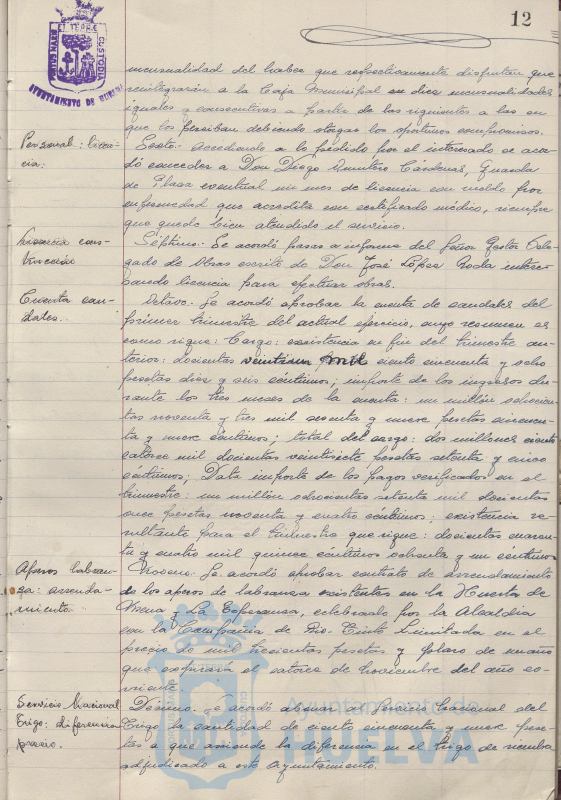 12
PORTUS MARIS
ET TERRE
CUSTODIA
AYUNTAMIENTO DE HUELVA
mensualidad del haber que respectivamente disfrutan que
reintegrarán a la Caja Municipal en diez mensualidades
iguales y consecutivas a partir de las siguientes a las en
que los perciban debiendo otorgar los oportunos compromisos.
Personal: licen-
cia:
Sexto: accediendo a lo pedido por el interesado se acor-
dó conceder a Don Diego Quintero Cárdenas, Guarda
de Plaza eventual un mes de licencia con sueldo por
enfermedad que acredita con certificado médico, siempre
que quede bien atendido el servicio.
licencia cons-
trucción
Séptimo: Se acordó pasar a informe del Señor Gestor Dele-
gado de Obras escrito de Don José López Roda intere-
sando licencia para efectuar obras.
Cuenta cau-
dales.
Octavo: Se acordó aprobar la cuenta de caudales del
primer trimestre del actual ejercicio, cuyo resumen es
como sigue: Cargo: existencia en fin del trimestre an-
terior: docientas veintiun mil ciento cincuenta y ocho
pesetas diez y seis céntimos; importe de los ingresos du-
rante los tres meses de la cuenta: un millón ochocien-
tas noventa y tres mil sesenta y nueve pesetas cincuen-
ta y nueve céntimos; total del cargo: dos millones ciento
catorce mil docientas veintisiete pesetas setenta y cinco
céntimos; Data importe de los pagos verificados en el
trimestre: un millón ochocientas setenta mil docientas
once pesetas noventa y cuatro céntimos; existencia re-
sultante para el trimestre que sigue: docientas cuaren-
ta y cuatro mil quince céntimos ochenta y un céntimos
Aperos labran-
za: arrenda-
miento.
Noveno: Se acordó aprobar contrato de arrendamiento
de los aperos de labranza existentes en la Huerta de
Mena y La Esperanza, celebrado por la Alcaldía
con la Compañía de Rio-Tinto Limitada en el
precio de mil trecientas pesetas y plazo de un año
que expirará el catorce de noviembre del año co-
rriente.
Servicio Nacional
Trigo: diferencia
precio.
Décimo: Se acordó abonar al Servicio Nacional del
Trigo la cantidad de ciento cincuenta y nueve pese-
tas a que asciende la diferencia en el trigo de siembra
adjudicado a este Ayuntamiento.
Ayuntamiento de
HUELVA